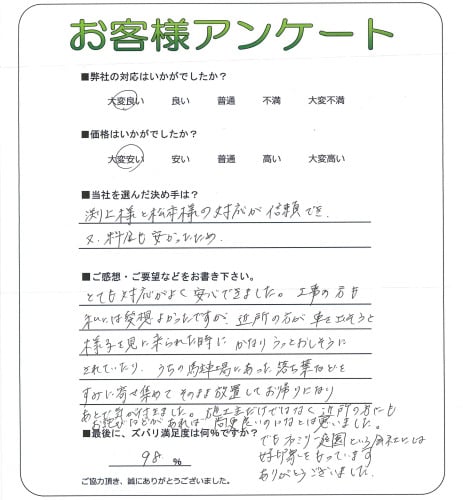 お客様アンケート
■弊社の対応はいかがでしたか？
大変良い 良い 普通 不満 大変不満
■価格はいかがでしたか？
大変安い 安い 普通 高い 大変高い
■当社を選んだ決め手は？
渕上様と松本様の対応が信頼でき、
又、料金も安かったため。
■ご感想・ご要望などをお書き下さい。
とても対応がよく安心できました。工事の方も
私には愛想よかったですが、近所の方が車を出そうと
様子を見に来られた時にかなりうっとおしそうに
されていたり、うちの駐車場にあった落ち葉などを
すみに寄せ集めてそのまま放置してお帰りになり
あとで気が付きました。施工主だけではなく近所の方にも
があれば尚更良いのになとは思いました。
■最後に、ズバリ満足度は何%ですか？
98 %
でも 庭園という会社には
好印象をもっています
ありがとうございました。
ご協力頂き、誠にありがとうございました。